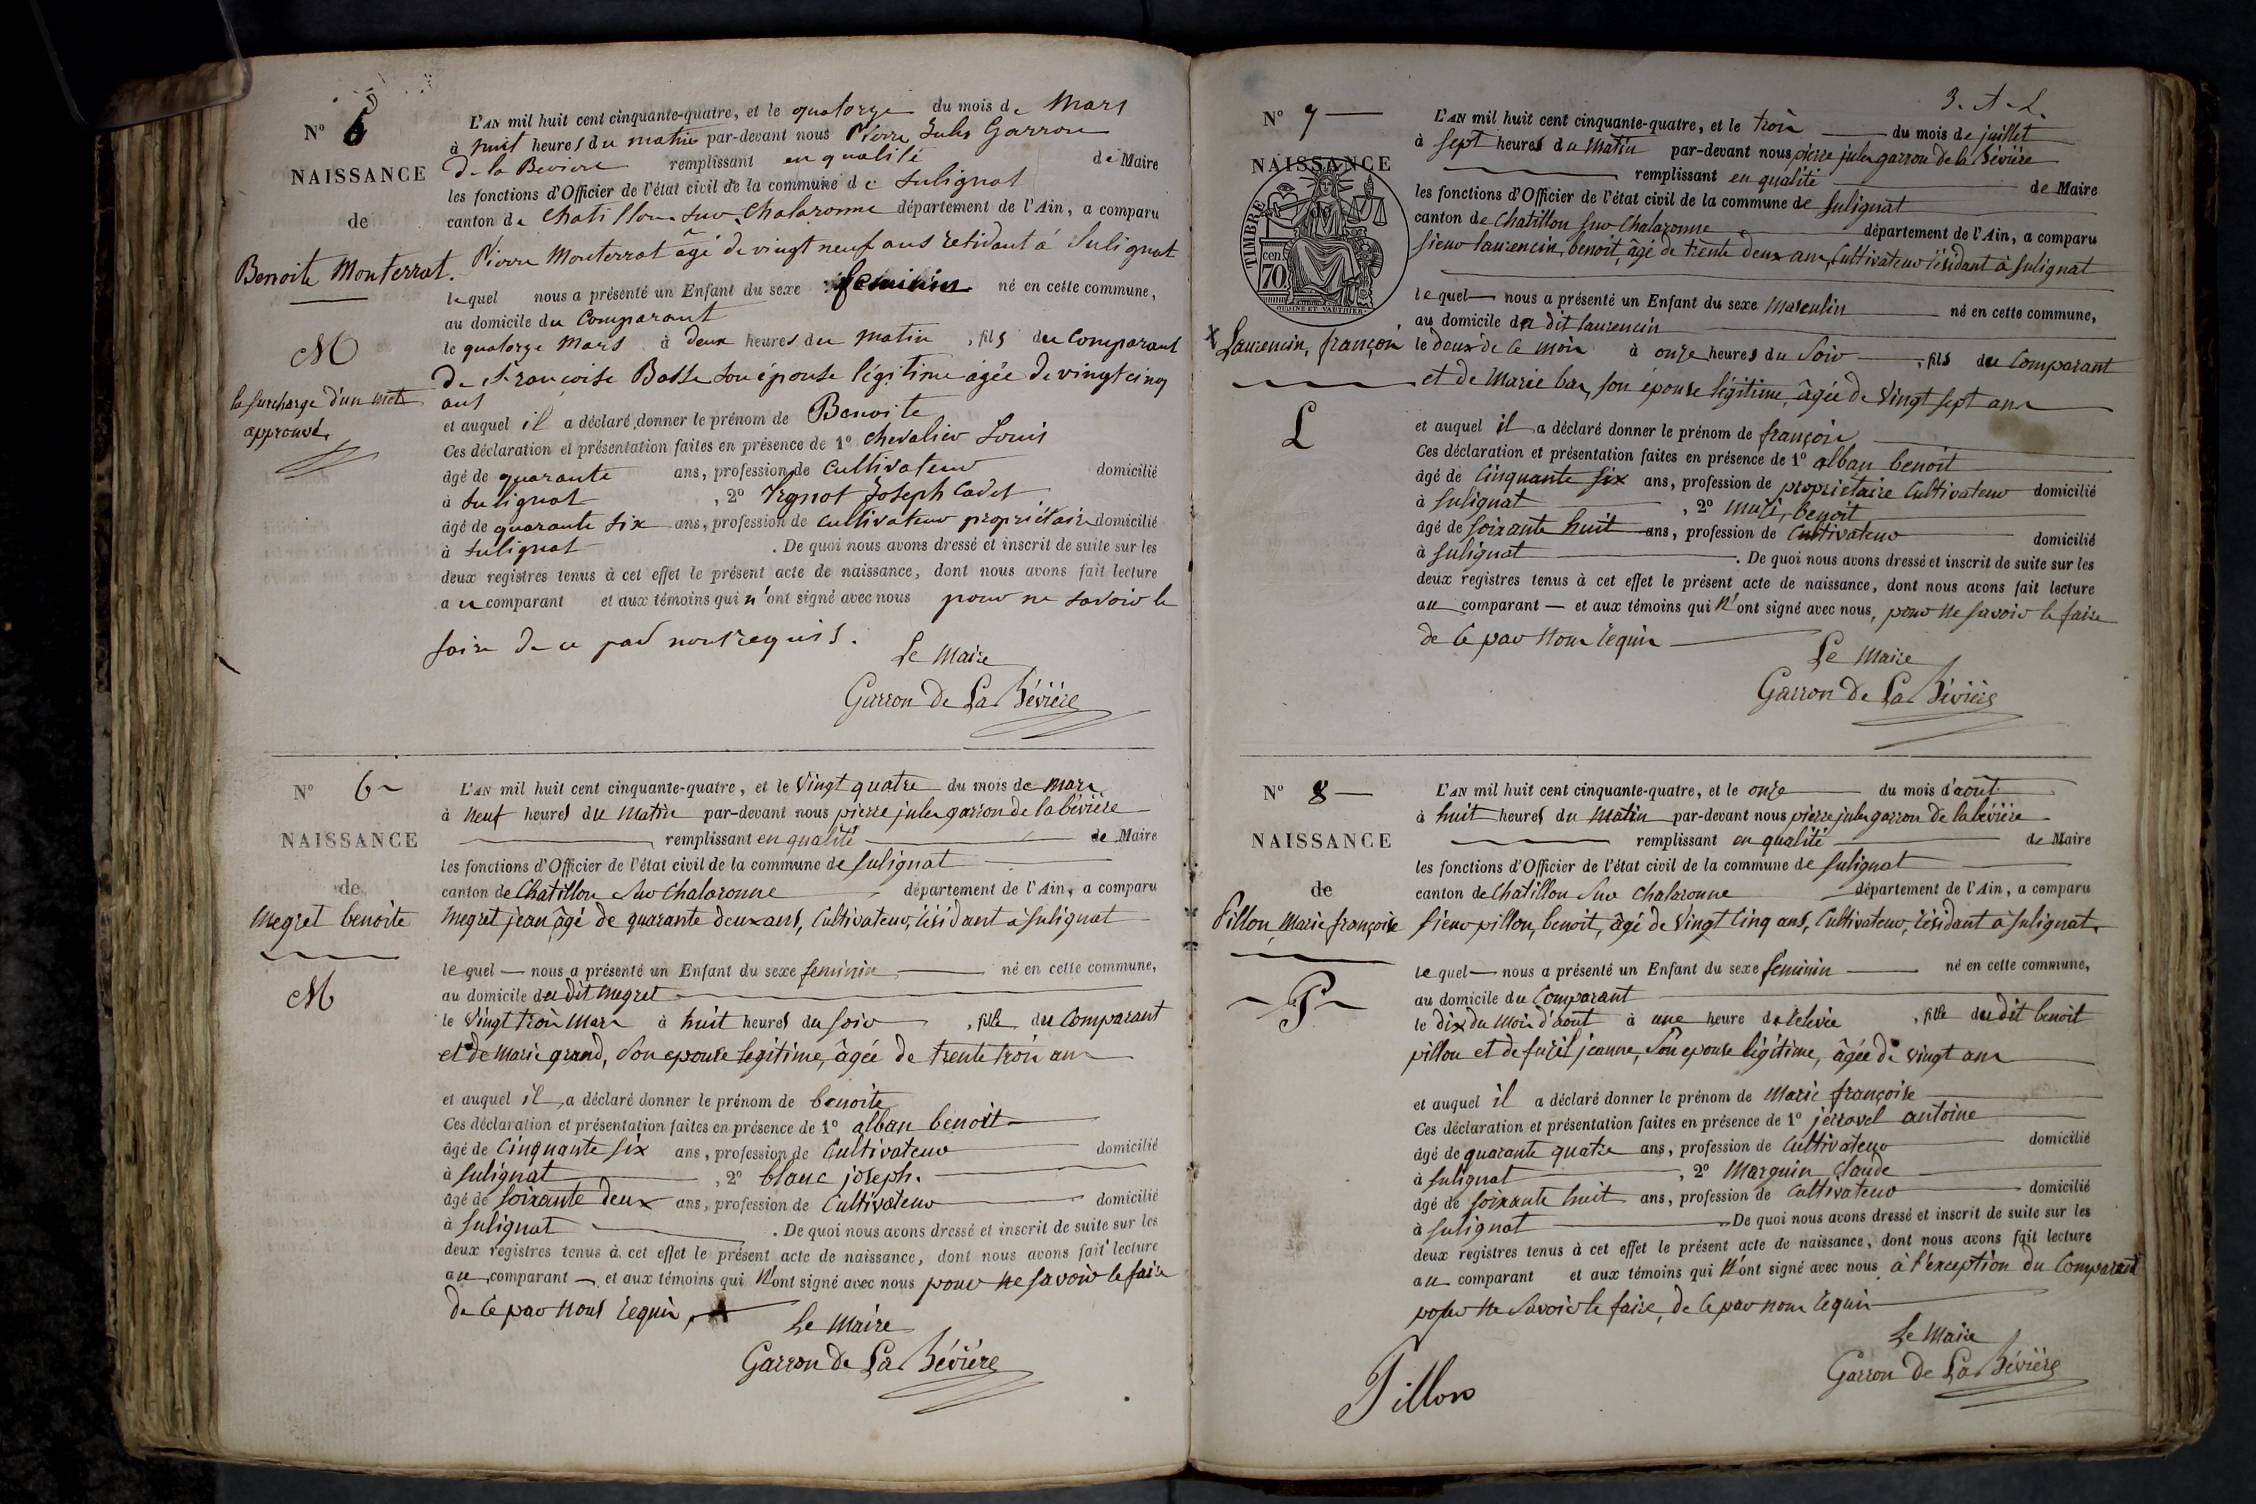 Nº 6
NAISSANCE
de
Benoite Monterrat.
M
la surcharge d'un mot
approuvé.
L'AN mil huit cent cinquante-quatre, et le quatorze du mois de Mars
à huit heures du matin par-devant nous Pierre Jules Garron
de la Beviere remplissant en qualité de Maire
les fonctions d'Officier de l'état civil de la commune de Sulignat
canton de Chatillon-sur-Chalaronne département de l'Ain, a comparu
Pierre Monterrat âgé de vingt neuf ans residant à Sulignat
lequel nous a présenté un Enfant du sexe feminin né en cette commune,
au domicile du Comparant
le quatorze Mars à deux heures du matin , fils du Comparant
de Francoise Basse son épouse légitime agée de vingt cinq
ans
et auquel il a déclaré donner le prénom de Benoite
Ces déclaration et présentation faites en présence de 1º chevalier Louis
âgé de quarante ans, profession de cultivateur domicilié
à Sulignat , 2º Joseph Cadet
âgé de quarante six ans, profession de cultivateur propriétaire domicilié
à Sulignat . De quoi nous avons dressé et inscrit de suite sur les
deux registres tenus à cet effet le présent acte de naissance, dont nous avons fait lecture
au comparant et aux témoins qui n'ont signé avec nous pour ne savoir le
faire de ce par nous requis.
Le Maire
Garron de La Bévière
Nº 6
NAISSANCE
de
Megret benoite
M
L'AN mil huit cent cinquante-quatre, et le vingt quatre du mois de mars
à neuf heures du matin par-devant nous pierre jules garron de la bévière
remplissant en qualité de Maire
les fonctions d'Officier de l'état civil de la commune de Sulignat
canton de Chatillon Sur Chalaronne département de l'Ain, a comparu
Megret jean, âgé de quarante deux ans, Cultivateur, résidant à Sulignat
lequel nous a présenté un Enfant du sexe feminin né en cette commune,
au domicile du dit Megret
le vingt trois Mars à huit heures du soir , fille du Comparant
et de Marie grand, Son epouse legitime, âgée de trente trois ans
et auquel il a déclaré donner le prénom de benoite
Ces déclaration et présentation faites en présence de 1º alban benoit
âgé de Cinquante six ans, profession de Cultivateur domicilié
à Sulignat , 2º blanc joseph.
âgé de soixante deux ans, profession de Cultivateur domicilié
à Sulignat . De quoi nous avons dressé et inscrit de suite sur les
deux registres tenus à cet effet le présent acte de naissance, dont nous avons fait lecture
au comparant et aux témoins qui n'ont signé avec nous pour ne savoir le faire
de ce par nous requis
Le Maire
Garron de La Bévière
3. A. L.
Nº 7
NAISSANCE
de
TIMBRE
70 cen
Laurencin, françois
L
L'AN mil huit cent cinquante-quatre, et le trois du mois de juillet
à sept heures du matin par-devant nous pierre jules garron de la Bévière
remplissant en qualité de Maire
les fonctions d'Officier de l'état civil de la commune de Sulignat
canton de Chatillon Sur Chalaronne département de l'Ain, a comparu
sieur laurencin, benoit, âgé de trente deux ans, Cultivateur résidant à Sulignat
lequel nous a présenté un Enfant du sexe Masculin né en cette commune,
au domicile du dit laurencin
le deux de ce mois à onze heures du Soir , fils du Comparant
et de Marie bas, son épouse légitime, âgée de vingt sept ans
et auquel il a déclaré donner le prénom de françois
Ces déclaration et présentation faites en présence de 1º alban benoit
âgé de Cinquante six ans, profession de propriétaire Cultivateur domicilié
à Sulignat , 2º benoit
âgé de Soixante huit ans, profession de Cultivateur domicilié
à Sulignat . De quoi nous avons dressé et inscrit de suite sur les
deux registres tenus à cet effet le présent acte de naissance, dont nous avons fait lecture
au comparant et aux témoins qui n'ont signé avec nous, pour ne savoir le faire
de ce par nous requis
Le Maire
Garron de La Bévière
Nº 8
NAISSANCE
de
Pillon, Marie françoise
P
L'AN mil huit cent cinquante-quatre, et le onze du mois d'août
à huit heures du matin par-devant nous pierre jules garron de la bévière
remplissant en qualité de Maire
les fonctions d'Officier de l'état civil de la commune de Sulignat
canton de Chatillon Sur Chalaronne département de l'Ain, a comparu
Sieur pillon, benoit, âgé de vingt Cinq ans, Cultivateur, résidant à Sulignat
lequel nous a présenté un Enfant du sexe feminin né en cette commune,
au domicile du Comparant
le dix du mois d'août à une heure de relevée , fille du dit benoit
pillon et de jeanne, Son epouse légitime, âgée de vingt ans
et auquel il a déclaré donner le prénom de Marie françoise
Ces déclaration et présentation faites en présence de 1º antoine
âgé de quarante quatre ans, profession de Cultivateur domicilié
à Sulignat , 2º Marguin Claude
âgé de Soixante huit ans, profession de Cultivateur domicilié
à Sulignat . De quoi nous avons dressé et inscrit de suite sur les
deux registres tenus à cet effet le présent acte de naissance, dont nous avons fait lecture
au comparant et aux témoins qui n'ont signé avec nous à l'exception du Comparant
pour ne savoir le faire, de ce par nous requis
Le Maire
Garron de La Bévière
Pillon